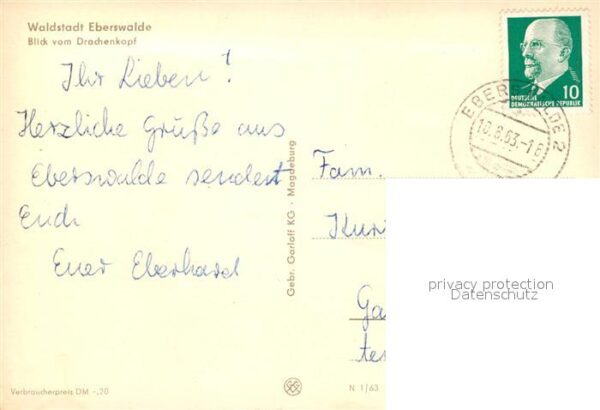 Waldstadt Eberswalde
Blick vom Drachenkopf
Ihr Lieben!
Herzliche Grüße aus
Eberswalde sendet
Euch
Euer Eberhard
Verbraucherpreis DM -,20
Gebr. Garloff KG · Magdeburg
N 1/63
10
DEUTSCHE
DEMOKRATISCHE REPUBLIK
EBERSWALDE 2
10.8.63.-18
Fam.
Kur
Ga
privacy protection
Datenschutz